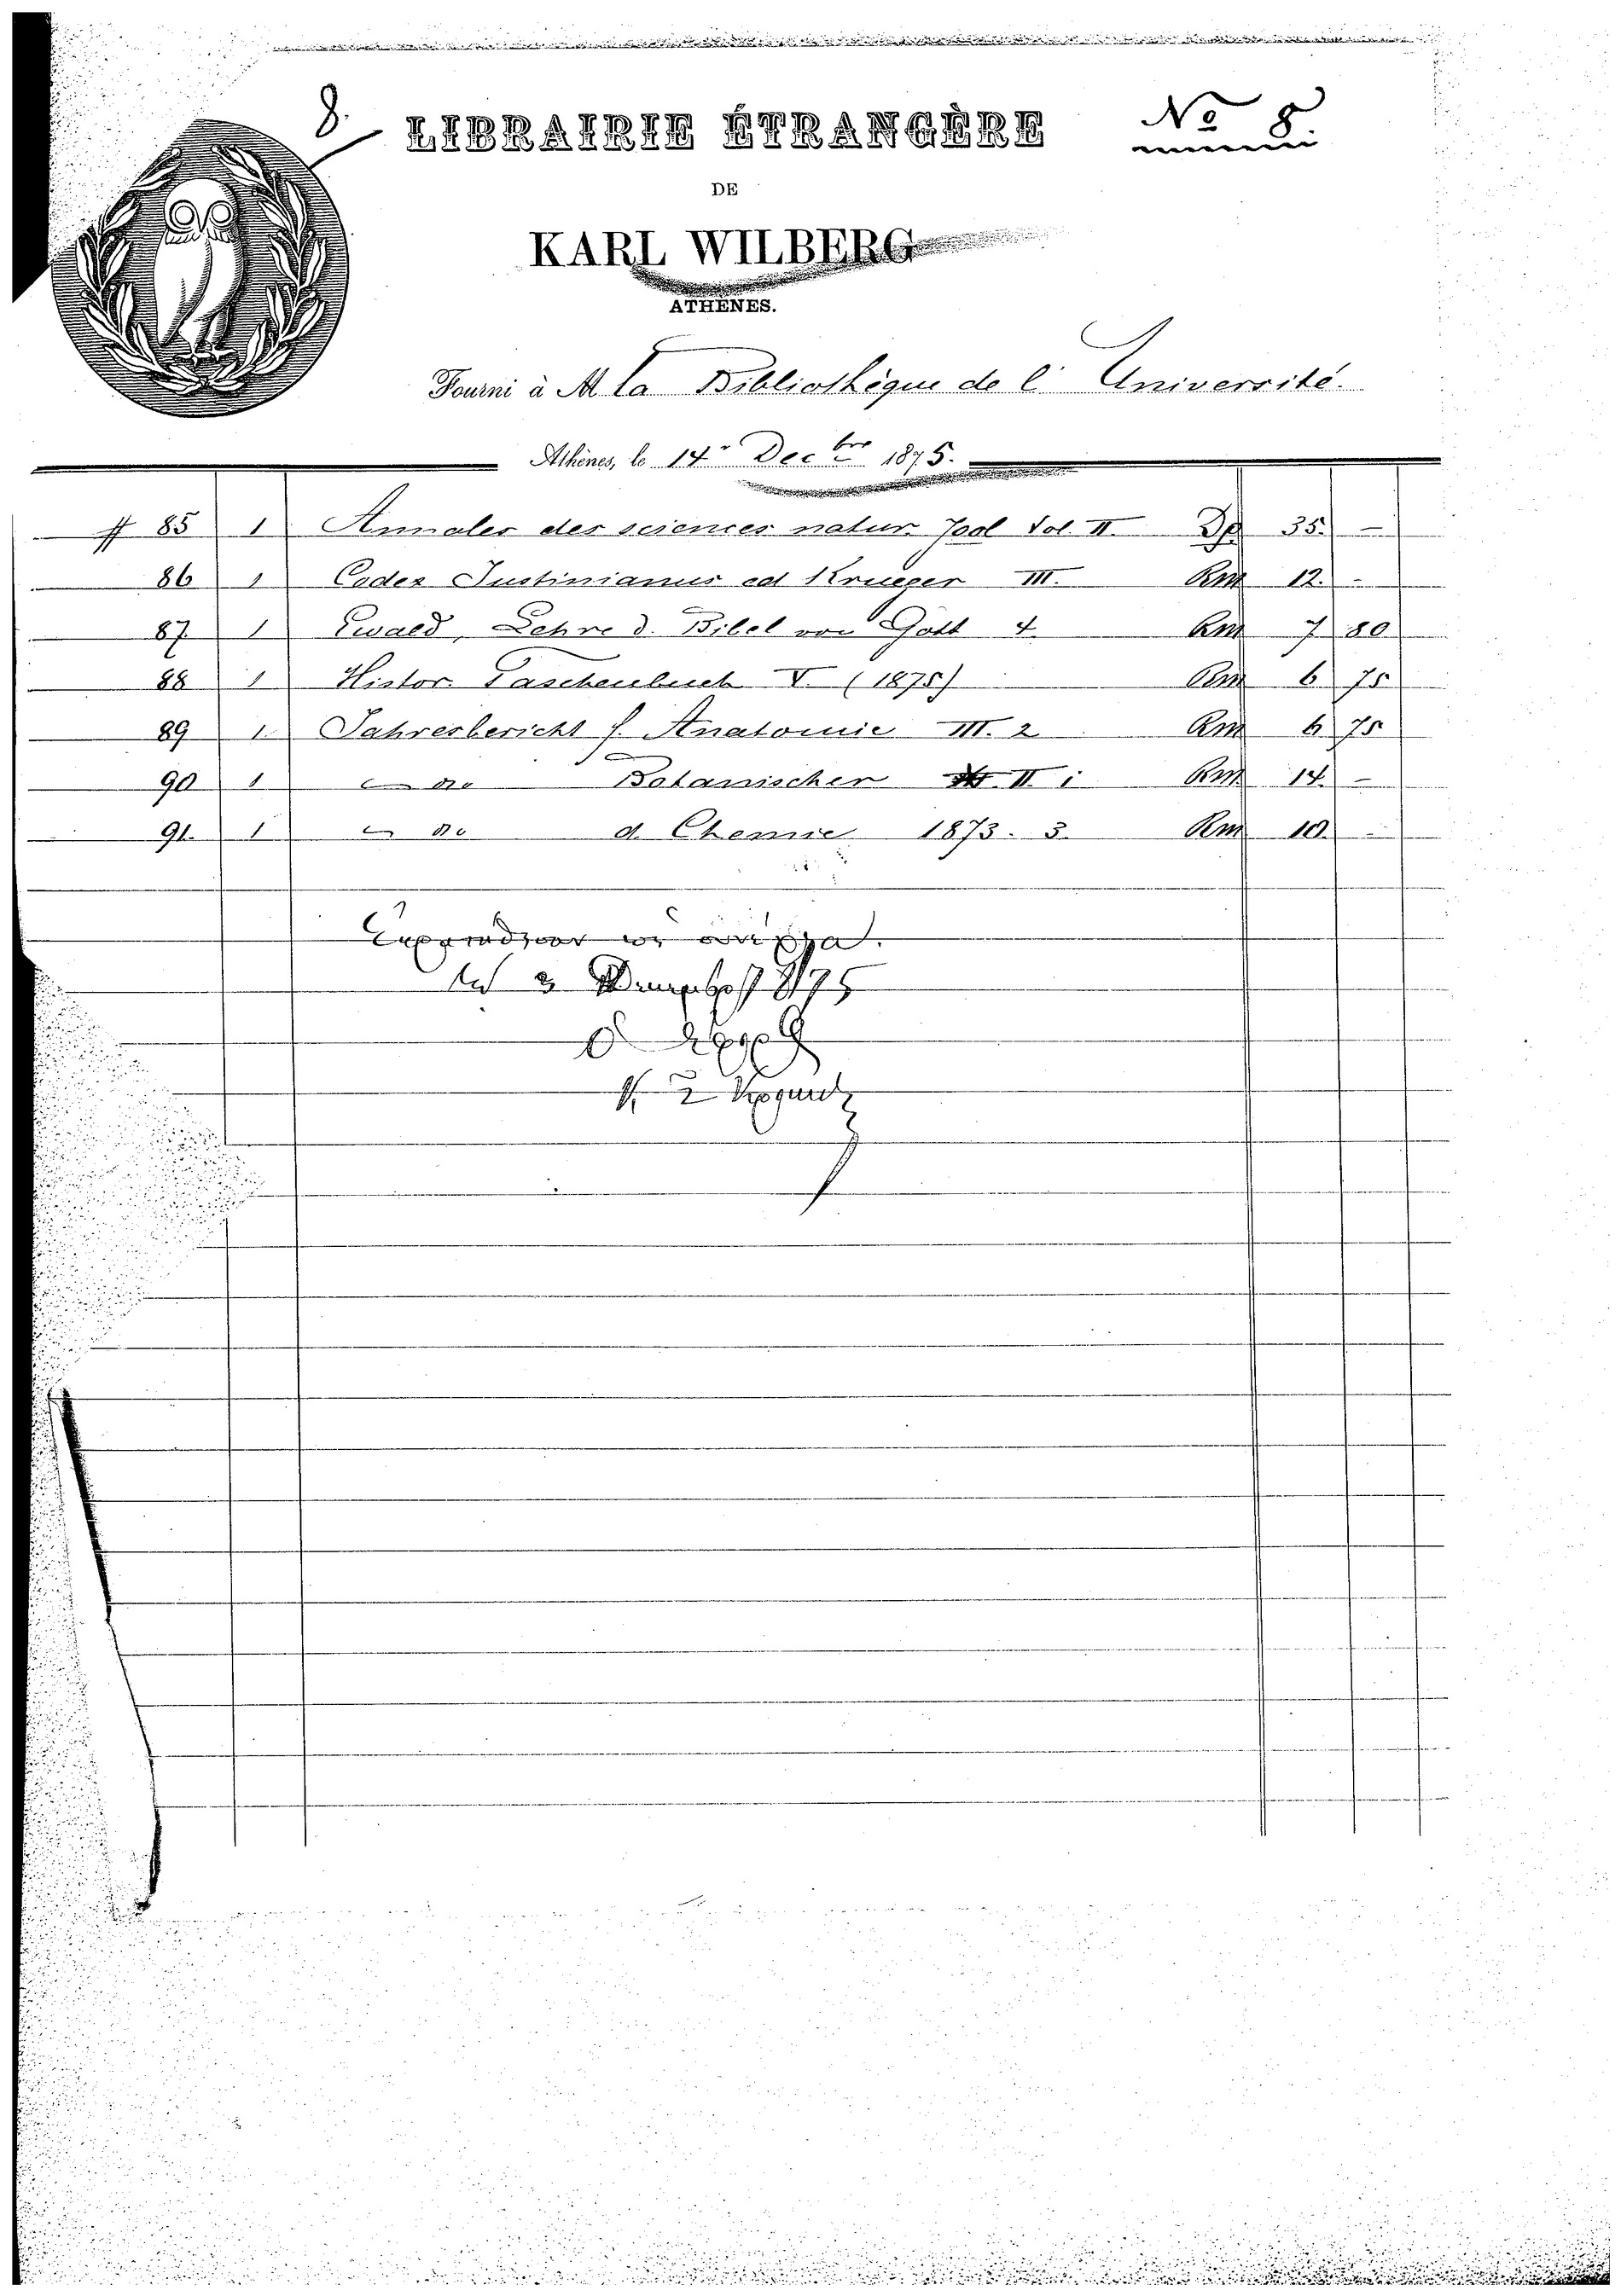 8.
LIBRAIRIE ÉTRANGÈRE
No 8.
DE
KARL WILBERG
ATHÈNES.
Fourni à M la Bibliothèque de l' Université.
Athènes, le 14 Dec bre 1875.
# 85 1 Annales des sciences natur. Zool Vol. II. Dr 35. —
86 1 Codex Justinianus ed Krueger III. Rm 12. -
87. 1 Ewald, Lehre d. Bibel von Gott 4. Rm 7 80
88 1 Histor. Taschenbuch V. (1875) Rm 6 75
89 1. Jahresbericht f. Anatomie III. 2 Rm 6 75
90 1 do Botanischer II 1 Rm 14. —
91. 1 do d. Chemie 1873. 3. Rm 10. -
1875